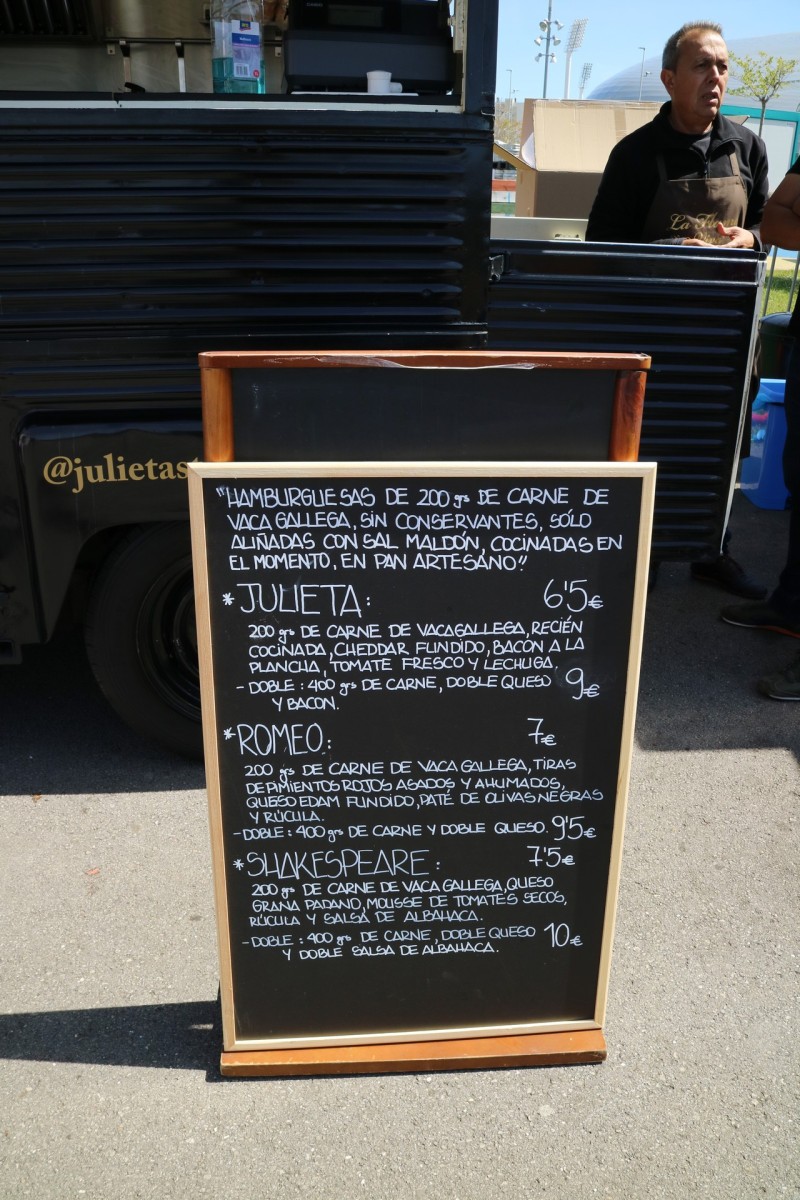 La
@julietast
"HAMBURGUESAS DE 200 grs DE CARNE DE
VACA GALLEGA, SIN CONSERVANTES, SÓLO
ALIÑADAS CON SAL MALDÓN, COCINADAS EN
EL MOMENTO, EN PAN ARTESANO"
*JULIETA: 6'5€
200 grs DE CARNE DE VACA GALLEGA, RECIÉN
COCINADA, CHEDDAR FUNDIDO, BACON A LA
PLANCHA, TOMATE FRESCO Y LECHUGA.
- DOBLE: 400 grs DE CARNE, DOBLE QUESO 9€
Y BACON.
*ROMEO: 7€
200 grs DE CARNE DE VACA GALLEGA, TIRAS
DE PIMIENTOS ROJOS ASADOS Y AHUMADOS,
QUESO EDAM FUNDIDO, PATÉ DE OLIVAS NEGRAS
Y RÚCULA.
- DOBLE: 400 grs DE CARNE Y DOBLE QUESO. 9'5€
*SHAKESPEARE: 7'5€
200 grs DE CARNE DE VACA GALLEGA, QUESO
GRANA PADANO, MOUSSE DE TOMATES SECOS,
RÚCULA Y SALSA DE ALBAHACA.
- DOBLE: 400 grs DE CARNE, DOBLE QUESO 10€
Y DOBLE SALSA DE ALBAHACA.